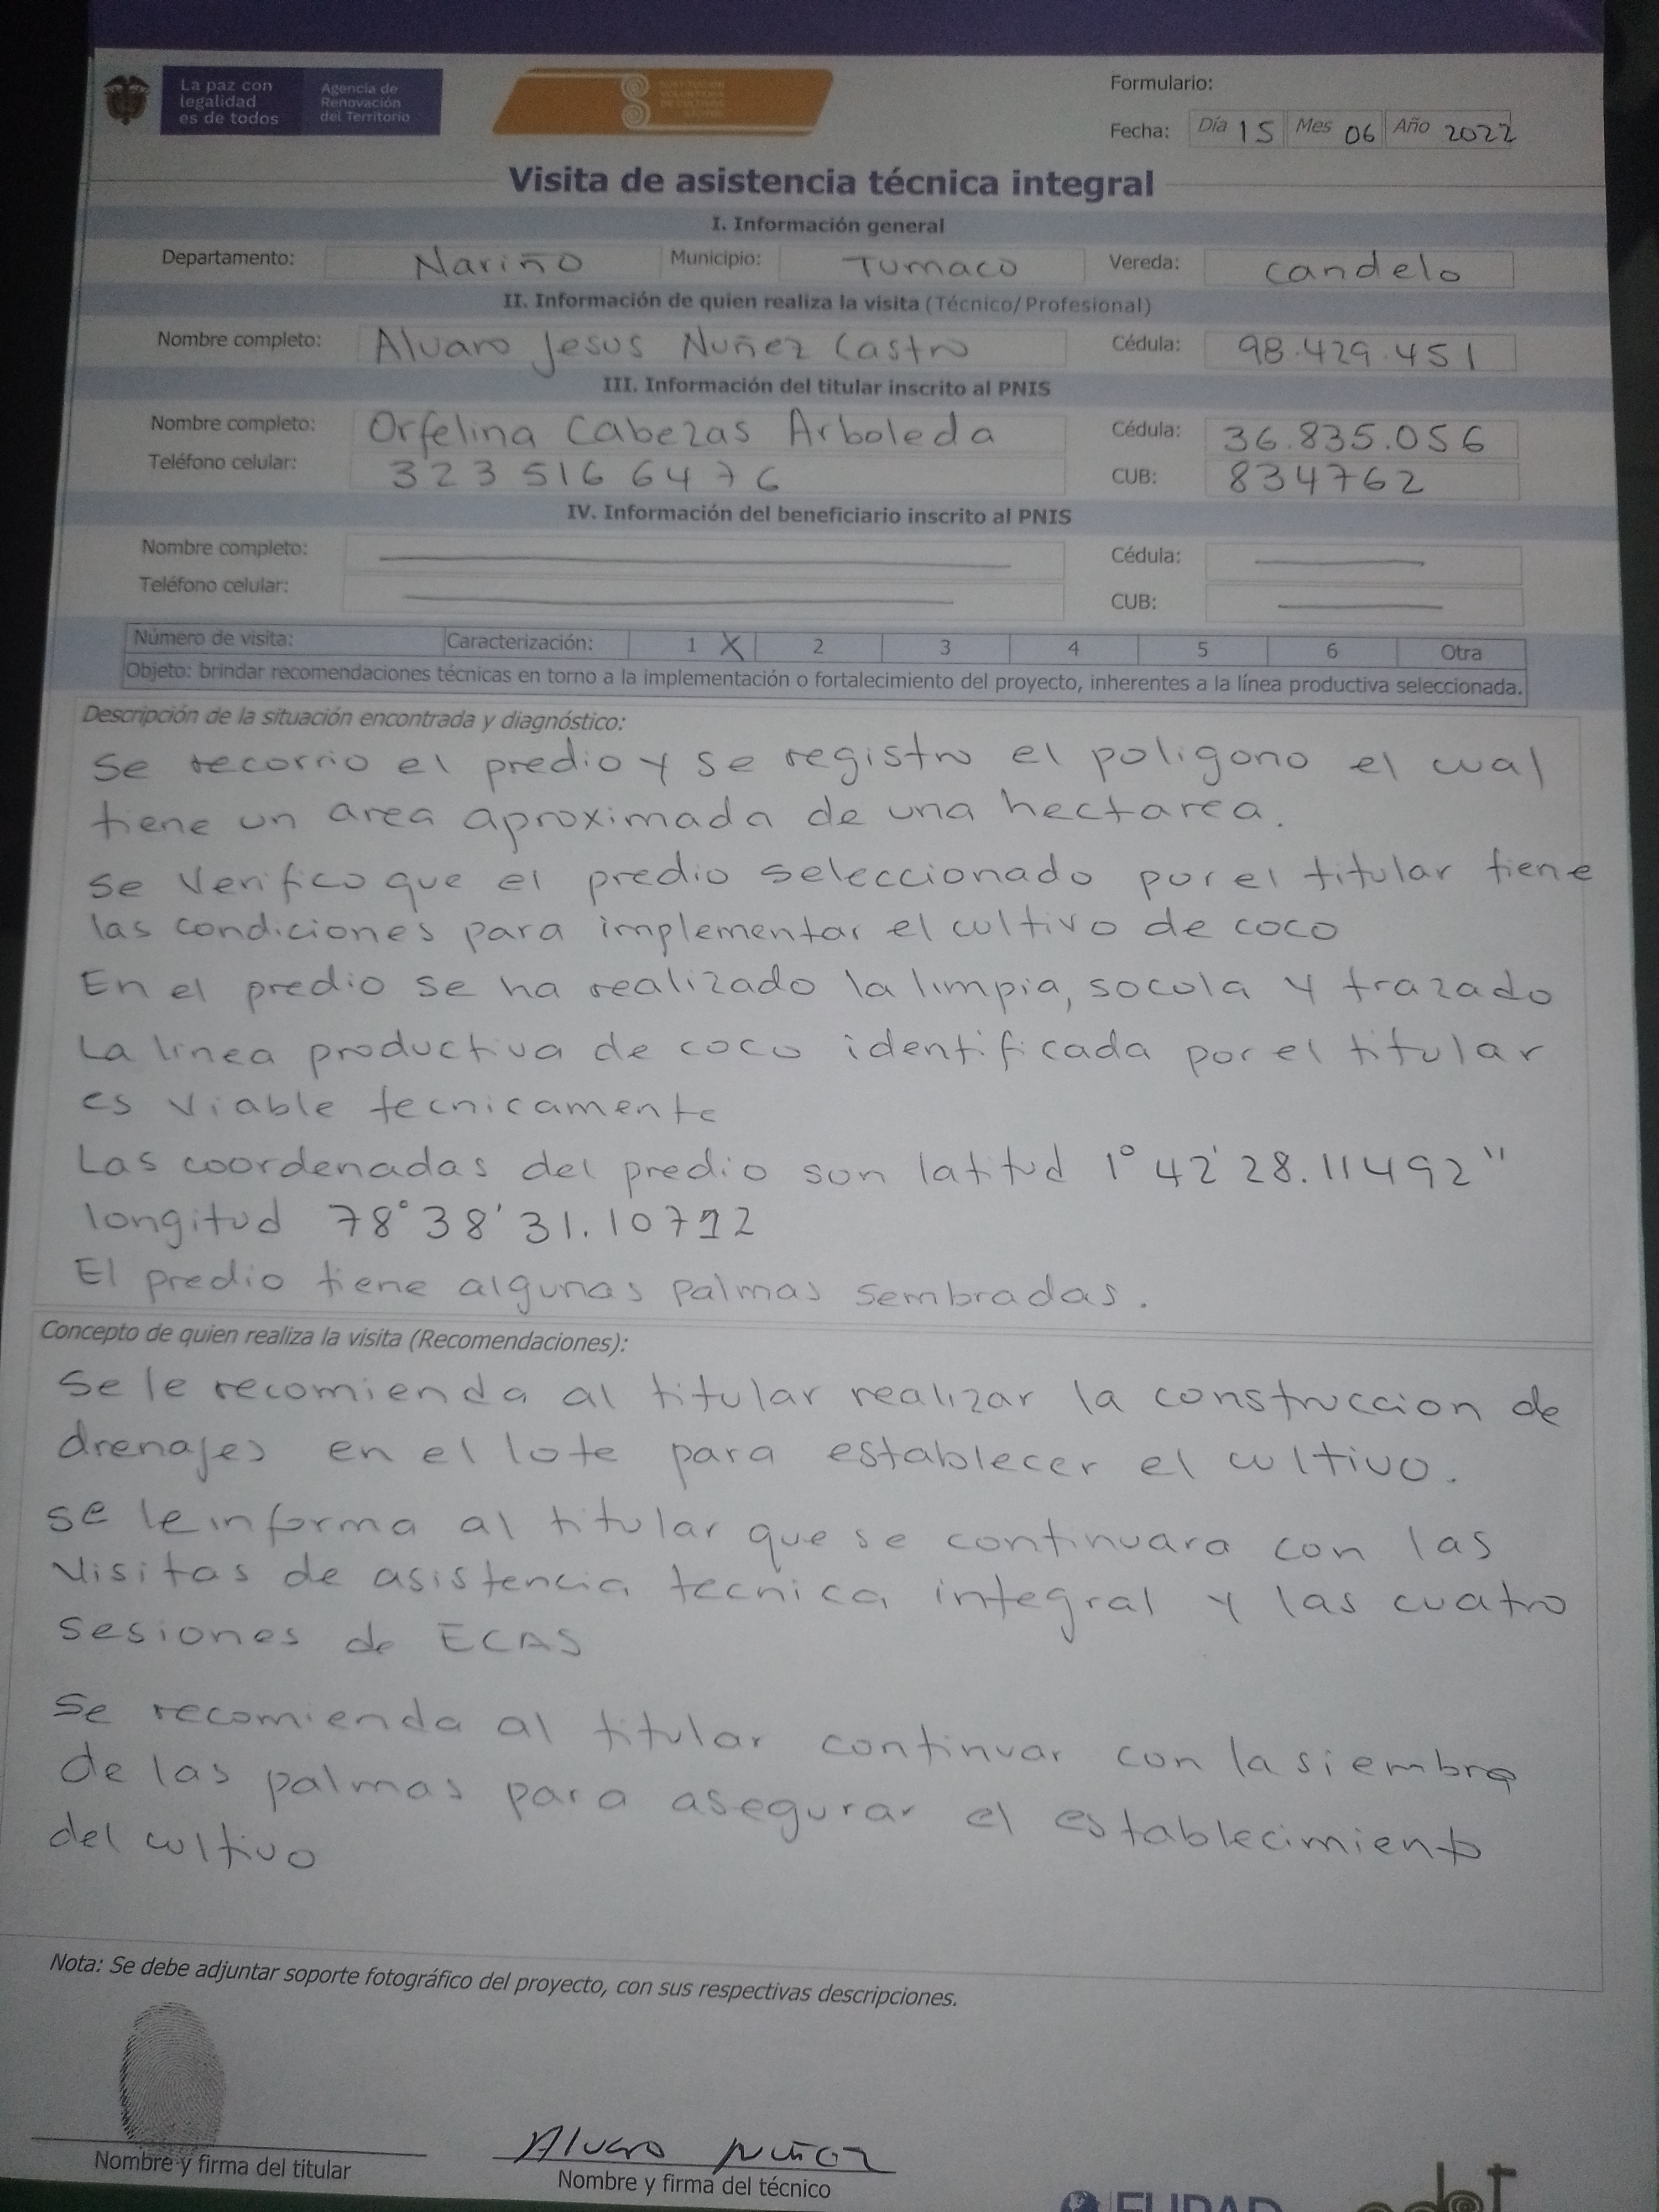 La paz con
legalidad
es de todos
Agencia de
Renovación
del Territorio
SUSTITUCIÓN
VOLUNTARIA
DE CULTIVOS
ILÍCITOS
Formulario:
Fecha: Día 15 Mes 06 Año 2022
Visita de asistencia técnica integral
I. Información general
Departamento: Nariño Municipio: Tumaco Vereda: candelo
II. Información de quien realiza la visita (Técnico/Profesional)
Nombre completo: Alvaro Jesus Nuñez Castro Cédula: 98.429.451
III. Información del titular inscrito al PNIS
Nombre completo: Orfelina Cabezas Arboleda Cédula: 36.835.056
Teléfono celular: 323 516 6476 CUB: 834762
IV. Información del beneficiario inscrito al PNIS
Nombre completo: Cédula:
Teléfono celular: CUB:
Número de visita: Caracterización: 1 X 2 3 4 5 6 Otra
Objeto: brindar recomendaciones técnicas en torno a la implementación o fortalecimiento del proyecto, inherentes a la línea productiva seleccionada.
Descripción de la situación encontrada y diagnóstico:
Se recorrio el predio y se registro el poligono el cual
tiene un area aproximada de una hectarea.
Se Verifico que el predio seleccionado por el titular tiene
las condiciones para implementar el cultivo de coco
En el predio se ha realizado la limpia, socola y trazado
La linea productiva de coco identificada por el titular
es viable tecnicamente
Las coordenadas del predio son latitud 1° 42' 28.11492"
longitud 78° 38' 31.10792
El predio tiene algunas palmas sembradas.
Concepto de quien realiza la visita (Recomendaciones):
Se le recomienda al titular realizar la construccion de
drenajes en el lote para establecer el cultivo.
se le informa al titular que se continuara con las
Visitas de asistencia tecnica integral y las cuatro
sesiones de ECAS
Se recomienda al titular continuar con la siembra
de las palmas para asegurar el establecimiento
del cultivo
Nota: Se debe adjuntar soporte fotográfico del proyecto, con sus respectivas descripciones.
Alvaro Nuñez
Nombre y firma del titular Nombre y firma del técnico